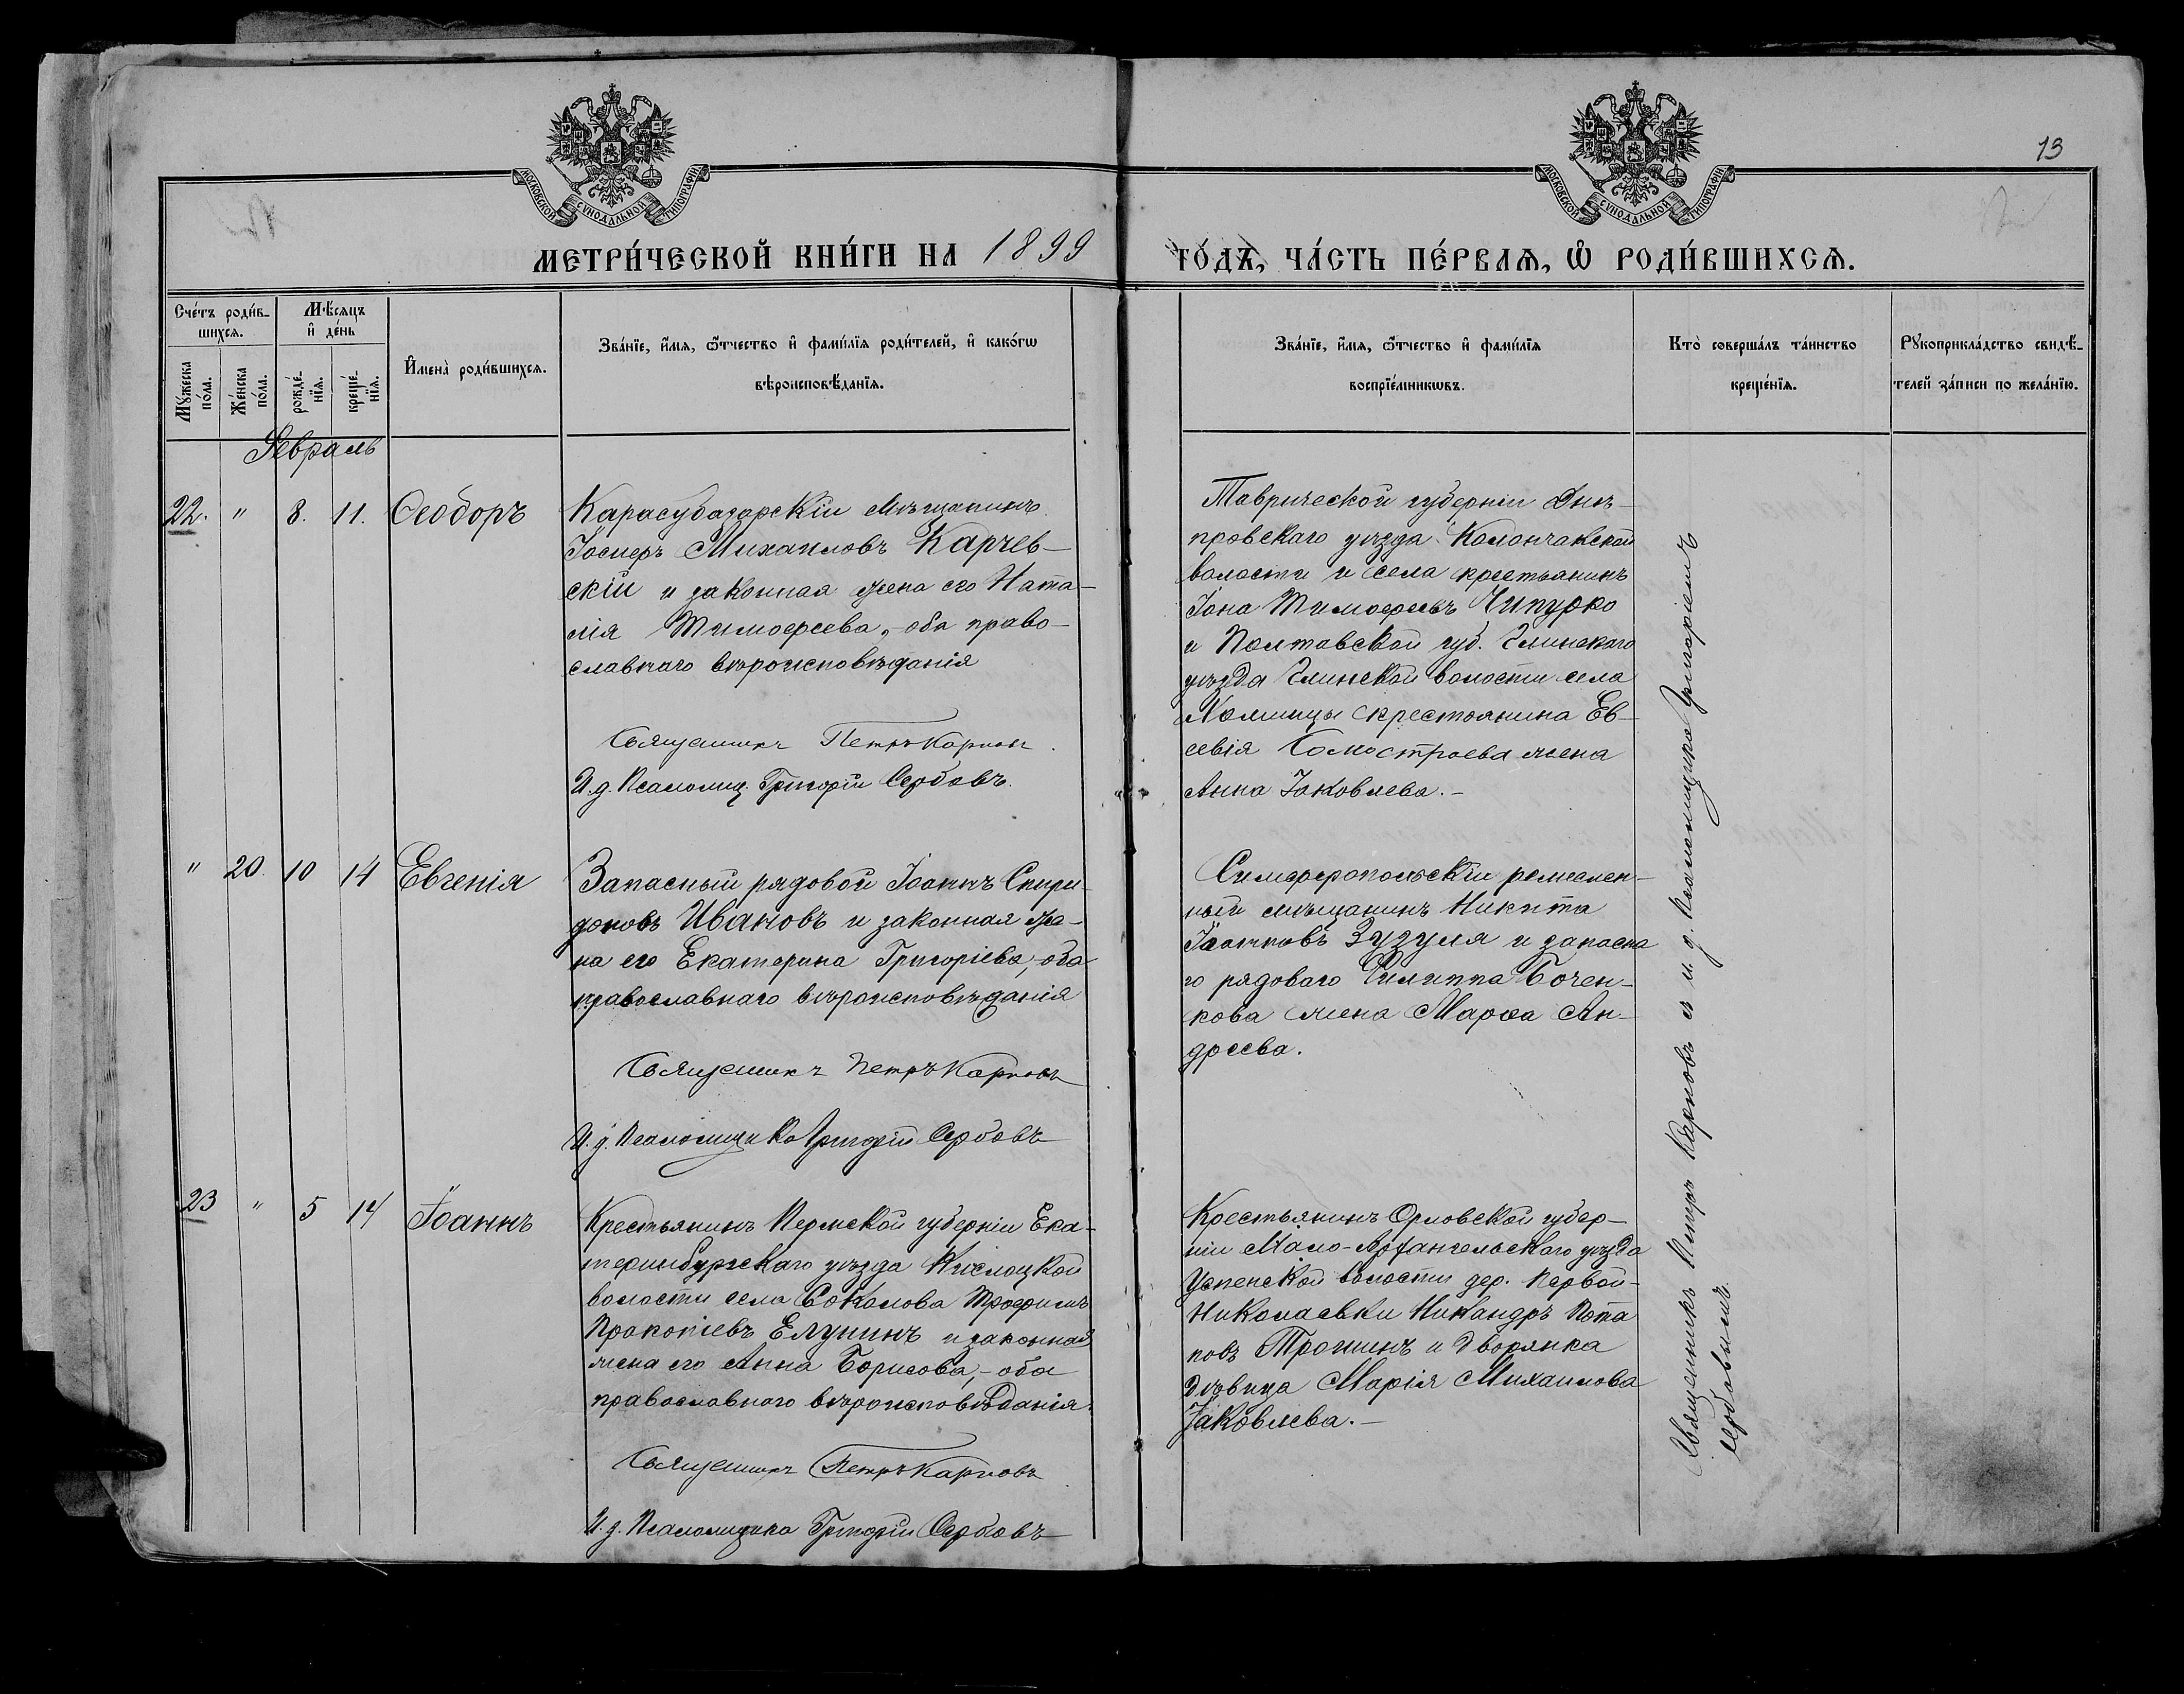 МОСКОВСКОЙ СУНОДАЛЬНОЙ ТИПОГРАФІИ
МОСКОВСКОЙ СУНОДАЛЬНОЙ ТИПОГРАФІИ
13
МЕТРИ́ЧЕСКОЙ КНИ́ГИ НА 1899 ГО́ДЪ, ЧА́СТЬ ПЕ́РВАѦ, Ѡ҆ РОДИ́ВШИХСѦ.
Сче́тъ роди́в-
шихсѧ.
Мꙋ́жеска по́ла.
Же́нска по́ла.
Мѣ́сѧцъ
и҆ де́нь
рожде́-
нїѧ.
креще́-
нїѧ.
И҆мена̀ роди́вшихсѧ.
Зва́нїе, и҆́мѧ, ѻ҆́тчество и҆ фами́лїѧ роди́телей, и҆ како́гѡ
вѣроисповѣ́данїѧ.
Зва́нїе, и҆́мѧ, ѻ҆́тчество и҆ фами́лїѧ
воспрїе́мникѡвъ.
Кто̀ соверша́лъ та́инство
креще́нїѧ.
Рꙋкоприкла́дство свидѣ́-
телей за́писи по жела́нїю.
Февраль
22. " 8. 11. Ѳеодоръ
Карасубазарскій мѣщанинъ
Іосифъ Михаиловъ Карчев-
скій и законная жена его Ната-
лія Тимофеева, - оба право-
славнаго вѣроисповѣданія
Священникъ Петръ Карповъ.
И. д. Псаломщ. Григорій Сербовъ.
Таврической губерніи Днѣ-
провскаго уѣзда Колончакской
волости и села крестьянинъ
Іона Тимофеевъ Чипурко
и Полтавской губ. Глинскаго
уѣзда Глинской волости села
крестьянина Ев-
севія жена
Анна Іаковлева. -
" 20. 10 14 Евгенія
Запасный рядовой Іоаннъ Спири-
доновъ Ивановъ и законная же-
на его Екатерина Григоріева, - оба
православнаго вѣроисповѣданія
Священникъ Петръ Карповъ
И. д. Псаломщика Григорій Сербовъ
Симферопольскій ремеслен-
ный мѣщанинъ Никита
Іоанновъ Зузуля и запасна
го рядоваго Филиппа Бочен-
кова жена Марѳа Ан-
дреева.
23 " 5 14 Іоаннъ
Крестьянинъ Пермской губерніи Ека-
теринбургскаго уѣзда
волости села Соколова Трофимъ
Прокопіевъ Елунинъ и законная
жена его Анна Борисова, - оба
православного вѣроисповѣданія.
Священникъ Петръ Карповъ
И. д. Псаломщика Григорій Сербовъ
Крестьянинъ Орловской губер-
ніи Мало-Архангельскаго уѣзда
Успенской волости дер. Первой-
Николаевки Никандръ Пота
повъ Трошинъ и дворянка
дѣвица Марія Михаилова
Іаковлева. -
Священникъ Петръ Карповъ съ и. д. псаломщика Григоріемъ
Сербовымъ.